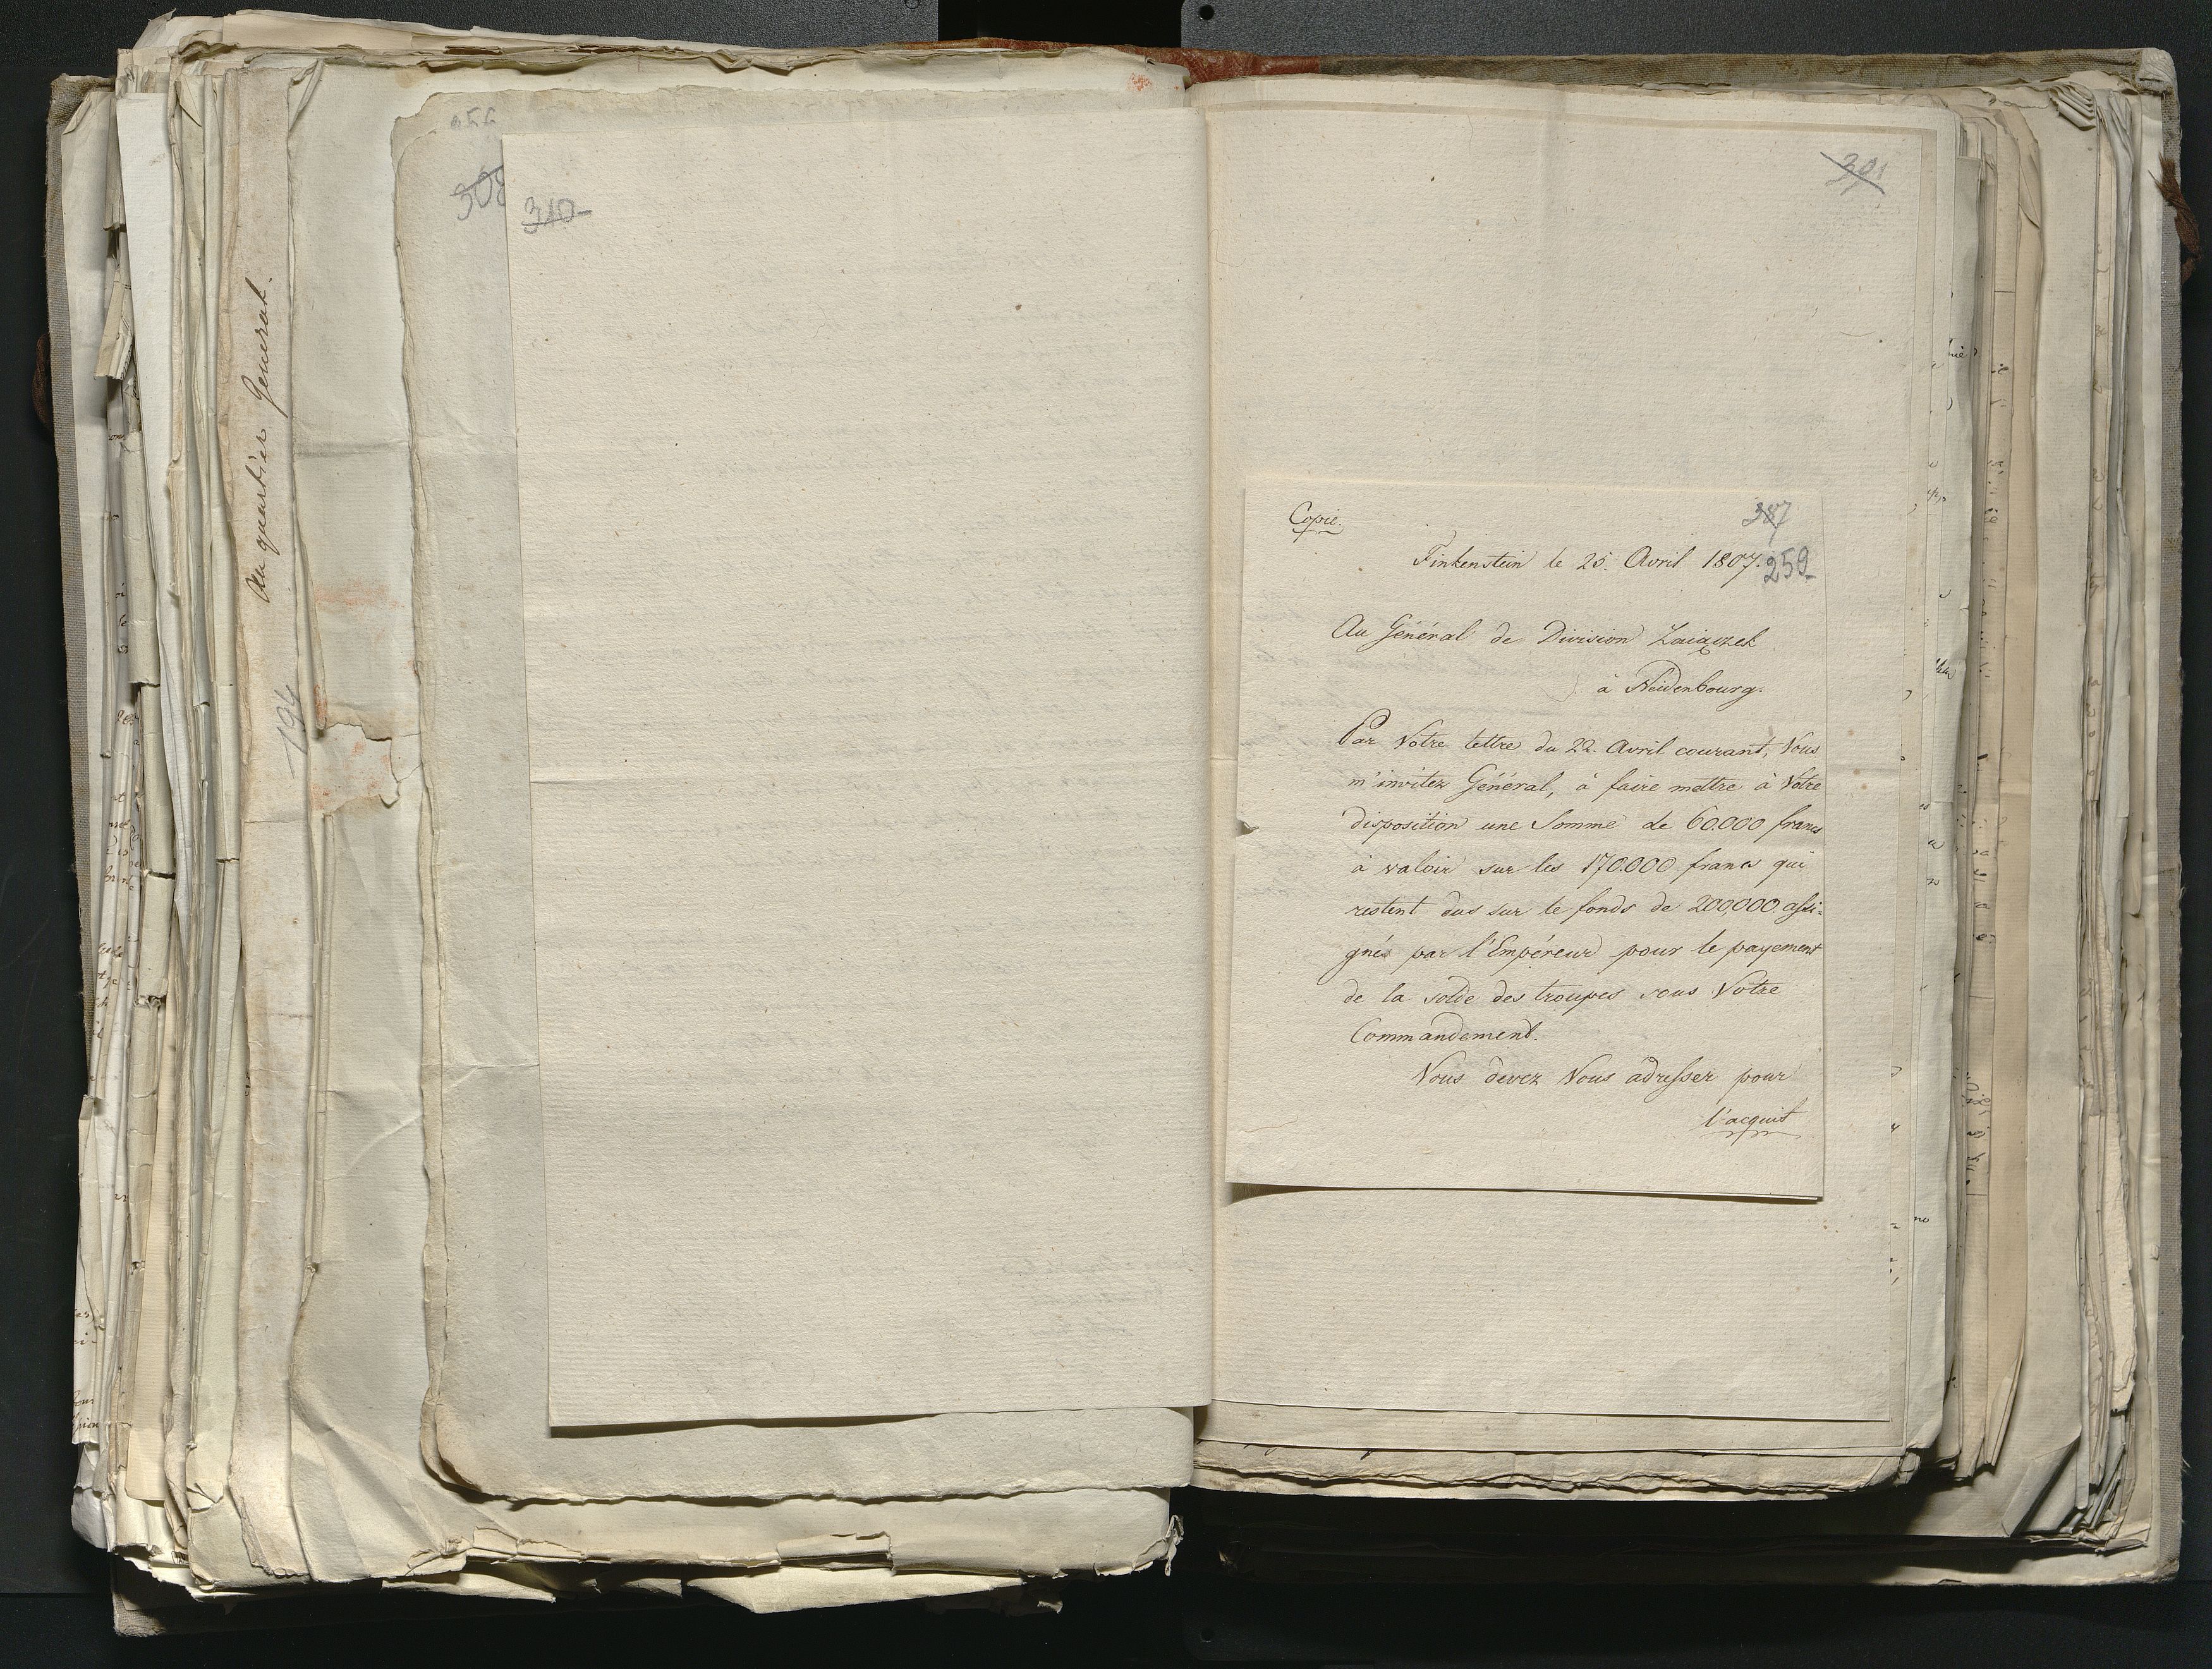 Au quartier General.
194
308
310
391
Copie.
387
Finkenstein le 25. Avril 1807.
259
Au Général de Division Zaiączek
à Neidenbourg.
Par Votre lettre du 22. Avril courant, Vous
m'invitez Général, à faire mettre à Votre
disposition une Somme de 60.000 francs
à valoir sur les 170.000 francs qui
restent dus sur le fonds de 200,000 assi=
gnés par l'Empéreur pour le payement
de la solde des troupes sous Votre
Commandement.
Vous devez Vous adresser pour
l'acquit